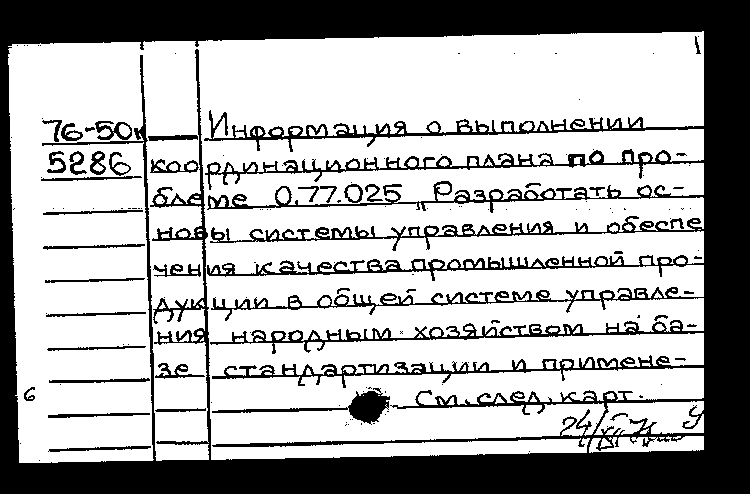 76-50к Информация о выполнении
5286 координационного плана по про-
блеме 0.77.025 „Разработать ос-
новы системы управления и обеспе
чения качества промышленной про-
дукции в общей системе управле-
ния народным хозяйством на ба-
зе стандартизации и примене-
6 См. след. карт.
24/XII